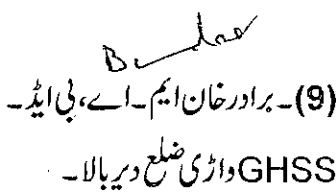 (9)۔ برادرخان ایم۔اے، بی ایڈ۔
GHSS واڑی ضلع دیر بالا۔